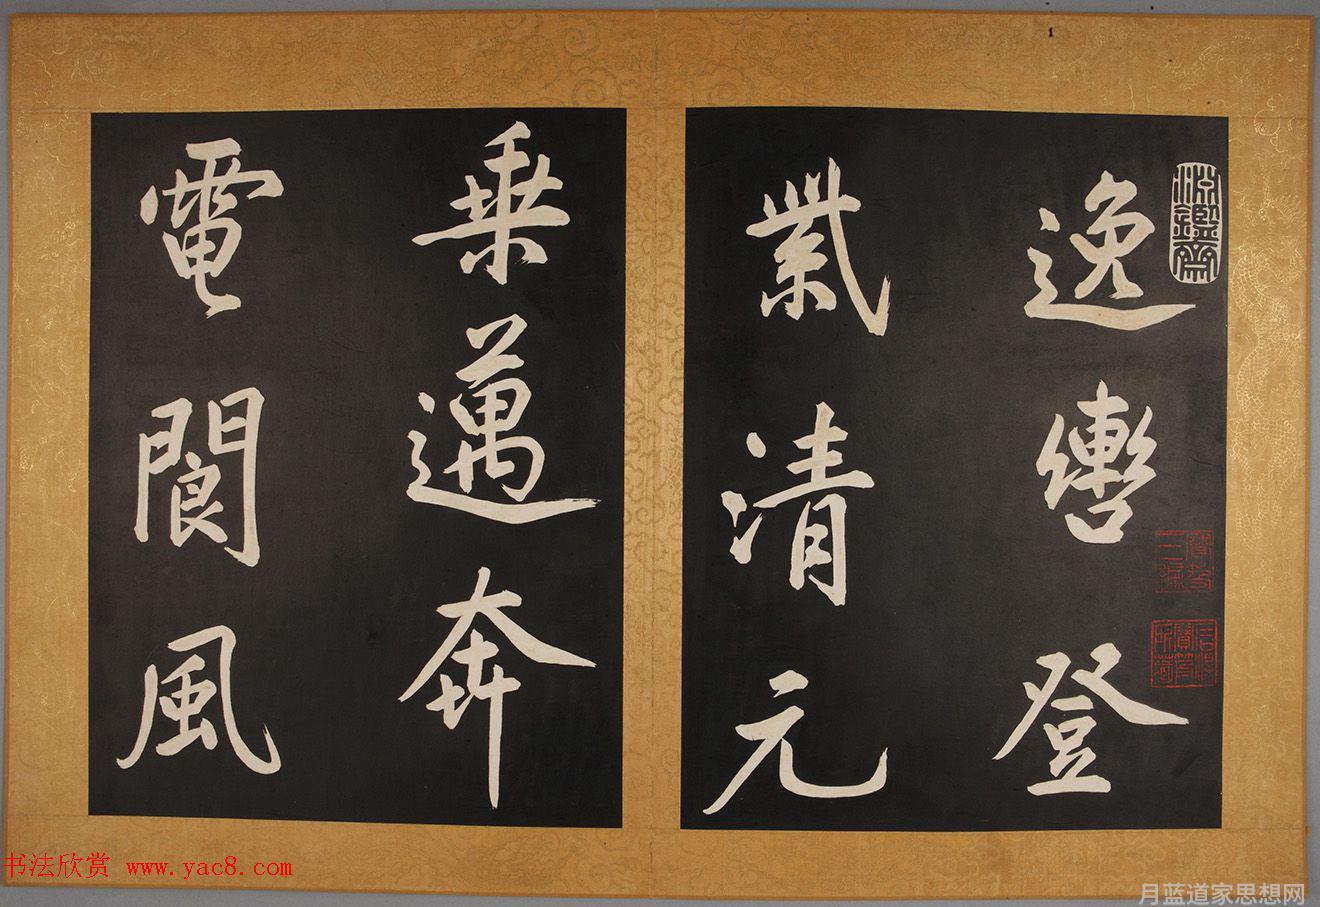 淵鑑齋
逸轡登
紫清元
乘邁奔
電閬風
书法欣赏 www.yac8.com
月蓝道家思想网